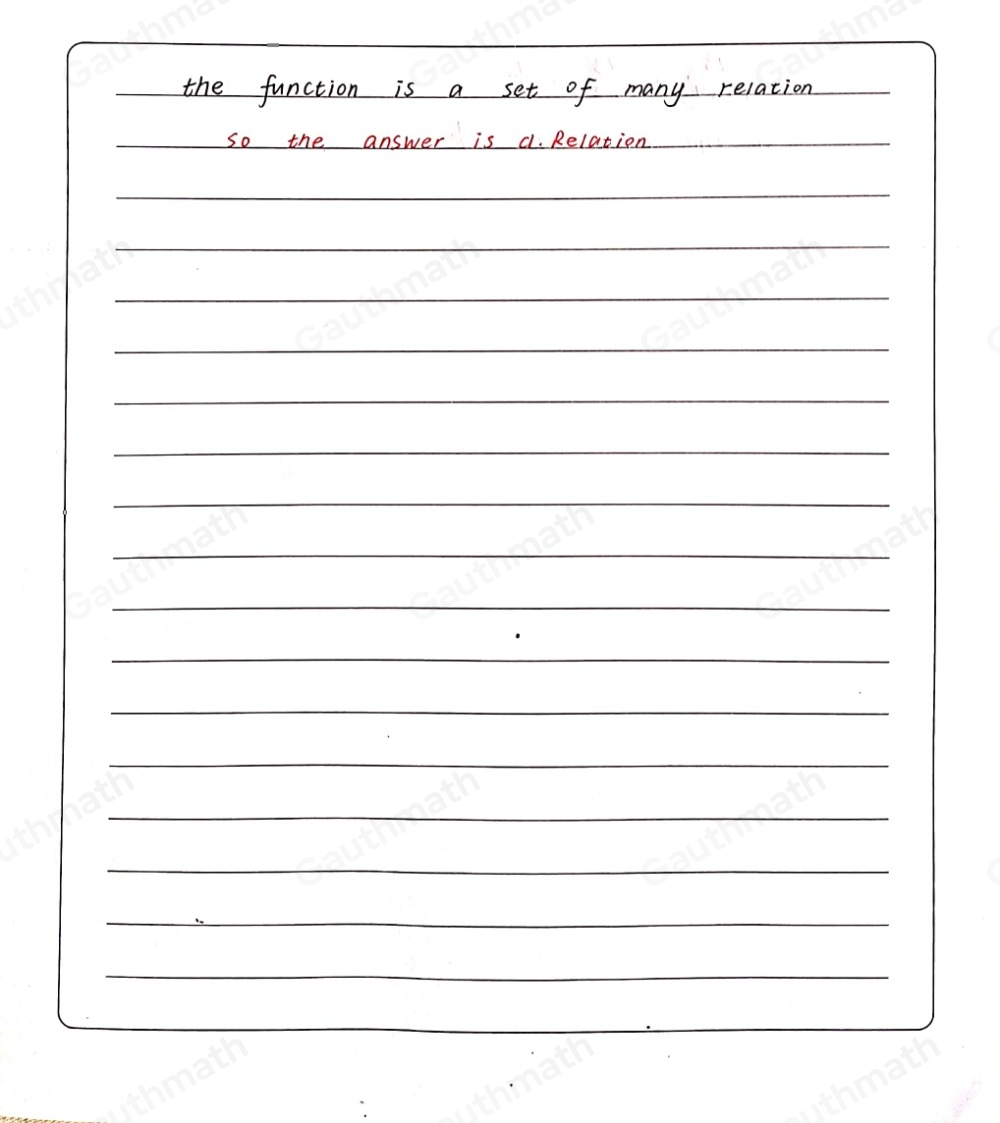 the function is a set of many relation
so the answer is d. Relation
Gauthmath